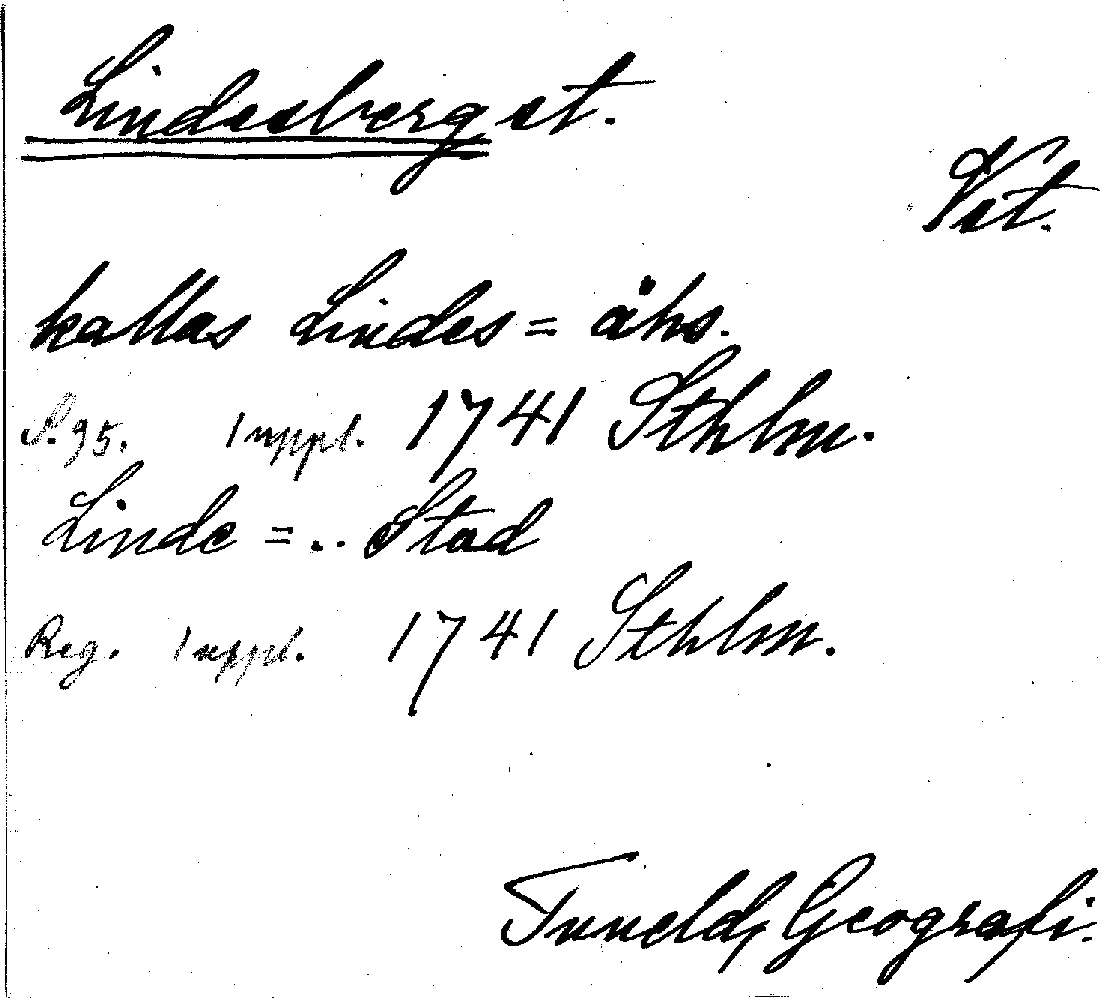 Lindesberg st.
Vst.
kallas Lindes= åhs.
S. 95. 1 uppl. 1741 Sthlm.
Linde=.. Stad
Reg. 1 uppl. 1741 Sthlm.
Tuneld, Geografi.